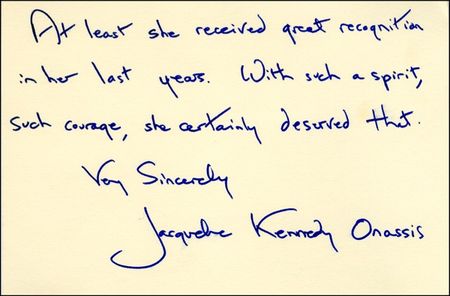 At least she received great recognition
in her last years. With such a spirit,
such courage, she certainly deserved that.
Very Sincerely
Jacqueline Kennedy Onassis